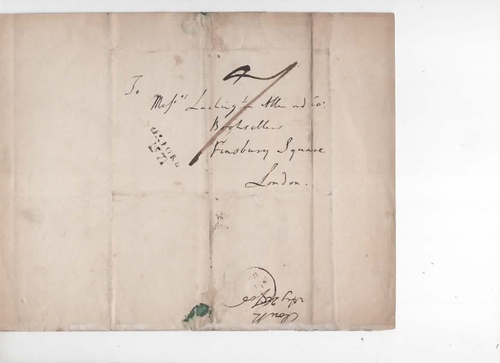 To
Mess:rs Lackington Allen and Co:
Booksellers
Finsbury Square
London.
OXFORD